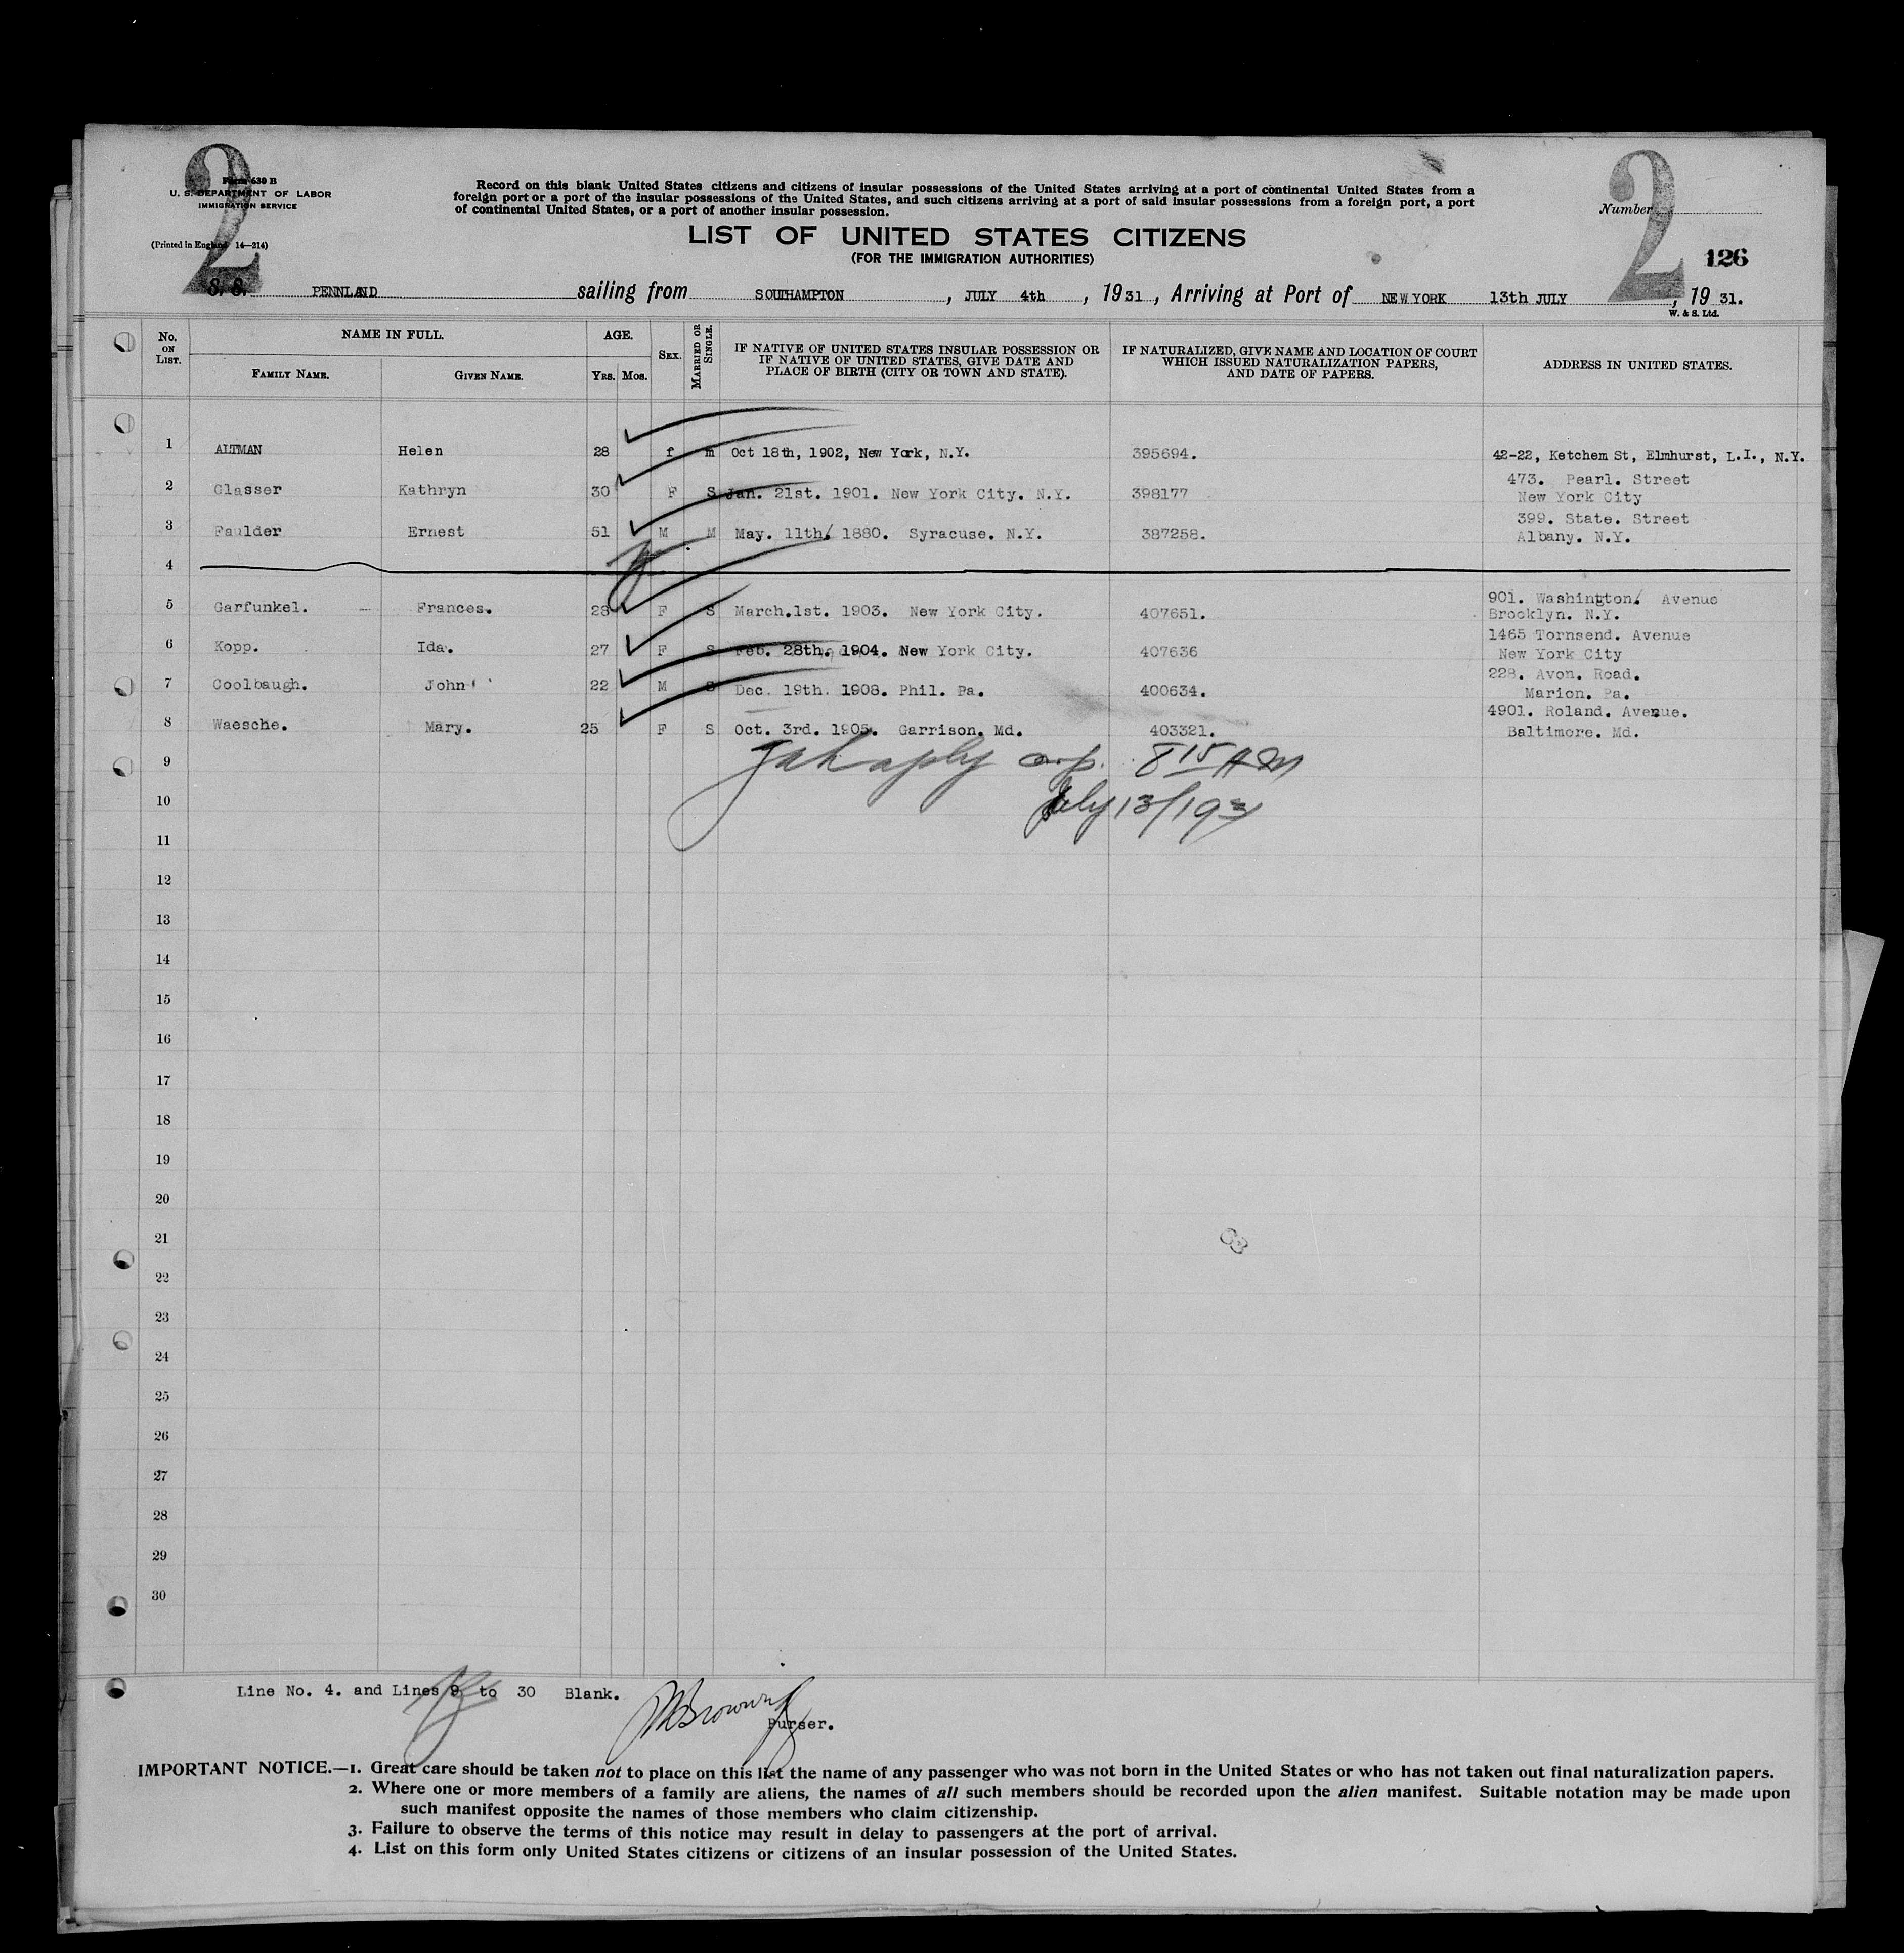 2
2
Form 630 B
U. S. DEPARTMENT OF LABOR
IMMIGRATION SERVICE
(Printed in England 14—214)
Record on this blank United States citizens and citizens of insular possessions of the United States arriving at a port of continental United States from a
foreign port or a port of the insular possessions of the United States, and such citizens arriving at a port of said insular possessions from a foreign port, a port
of continental United States, or a port of another insular possession.
Number
LIST OF UNITED STATES CITIZENS
(FOR THE IMMIGRATION AUTHORITIES)
126
S. S. PENNLAND sailing from SOUTHAMPTON, JULY 4th, 1931, Arriving at Port of NEW YORK 13th JULY, 19 31.
W. & S. Ltd.
No. ON LIST. NAME IN FULL. AGE. SEX. MARRIED OR SINGLE. IF NATIVE OF UNITED STATES INSULAR POSSESSION OR IF NATIVE OF UNITED STATES, GIVE DATE AND PLACE OF BIRTH (CITY OR TOWN AND STATE). IF NATURALIZED, GIVE NAME AND LOCATION OF COURT WHICH ISSUED NATURALIZATION PAPERS, AND DATE OF PAPERS. ADDRESS IN UNITED STATES.
FAMILY NAME. GIVEN NAME. YRS. MOS.
1 ALTMAN Helen 28 f m Oct 18th, 1902, New York, N.Y. 395694. 42-22, Ketchem St, Elmhurst, L.I., N.Y.
2 Glasser Kathryn 30 F S Jan. 21st. 1901. New York City. N.Y. 398177 473. Pearl. Street
New York City
3 Faulder Ernest 51 M M May. 11th/ 1880. Syracuse. N.Y. 387258. 399. State. Street
Albany. N.Y.
4
5 Garfunkel. Frances. 28 F S March.1st. 1903. New York City. 407651. 901. Washington/ Avenue
Brooklyn. N.Y.
6 Kopp. Ida. 27 F S Feb. 28th. 1904. New York City. 407636 1465 Tornsend. Avenue
New York City
7 Coolbaugh. John 22 M S Dec. 19th. 1908. Phil. Pa. 400634. 228. Avon. Road.
Marion. Pa.
8 Waesche. Mary. 25 F S Oct. 3rd. 1905. Garrison. Md. 403321. 4901. Roland. Avenue.
Baltimore. Md.
9 8 15 AM
10 July 13/1931
11
12
13
14
15
16
17
18
19
20
21
22
23
24
25
26
27
28
29
30
Line No. 4. and Lines 9 to 30 Blank.
Purser.
IMPORTANT NOTICE.—1. Great care should be taken not to place on this list the name of any passenger who was not born in the United States or who has not taken out final naturalization papers.
2. Where one or more members of a family are aliens, the names of all such members should be recorded upon the alien manifest. Suitable notation may be made upon
such manifest opposite the names of those members who claim citizenship.
3. Failure to observe the terms of this notice may result in delay to passengers at the port of arrival.
4. List on this form only United States citizens or citizens of an insular possession of the United States.